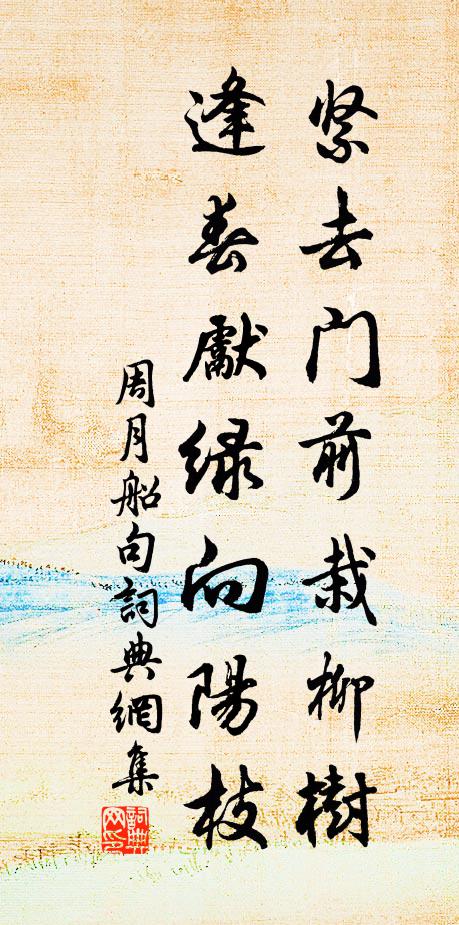 緊去門前栽柳樹
逢春獻綠向陽枝
周月船句詞典網集
詞典网印